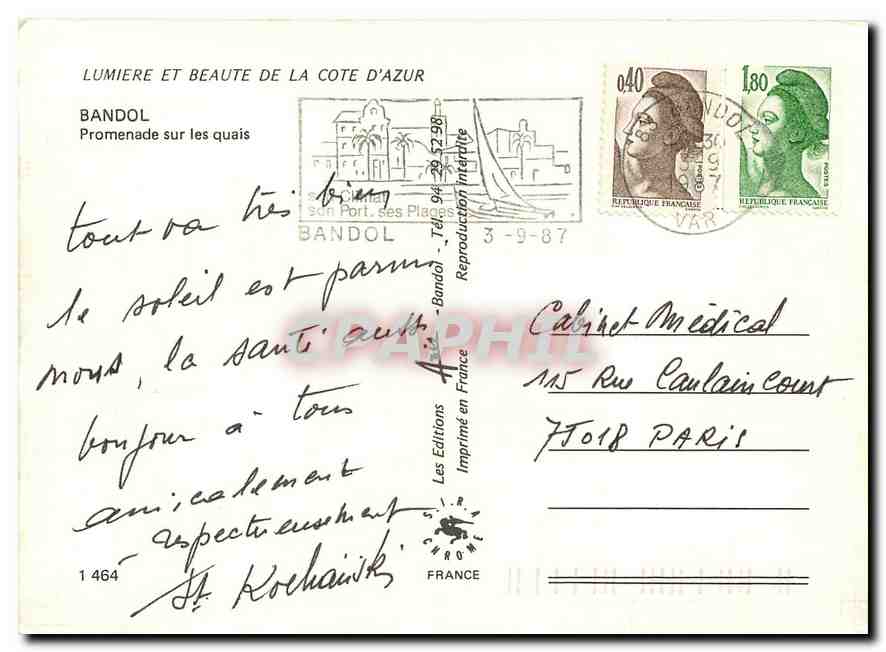 LUMIERE ET BEAUTE DE LA COTE D'AZUR
BANDOL
Promenade sur les quais
son Port. ses Plages
BANDOL 3-9-87
0,40
1,80
POSTES
REPUBLIQUE FRANÇAISE
REPUBLIQUE FRANÇAISE
VAR
tout va très bien
le soleil est parmi
nous, la santé aussi
bonjour à tous
amicalement
respectueusement
St Kochański
1 464
Les Editions Aris - Bandol - Tél. 94 29 52 98
Imprimé en France Reproduction interdite
S.I.R.A
CHROME
FRANCE
Cabinet Médical
115 Rue Caulaincourt
75018 PARIS
CPAPHIL